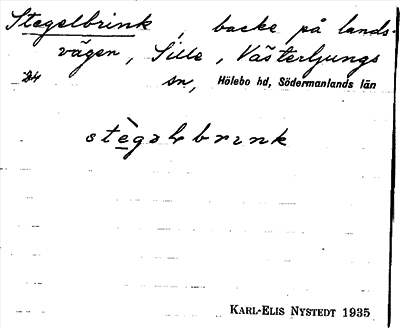 Stegelbrink, backe på lands-
vägen, Sille, Västerljungs
24 sn, Hölebo hd, Södermanlands län
stègəlbrınk
KARL-ELIS NYSTEDT 1935